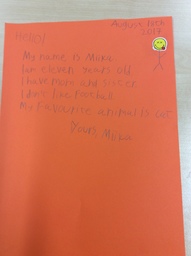 August 18th
2017
Hello!
My name is Muka
I am eleven years old
I have mom and sister
I don't love football
My favourite animal is cat
Yours, Muka